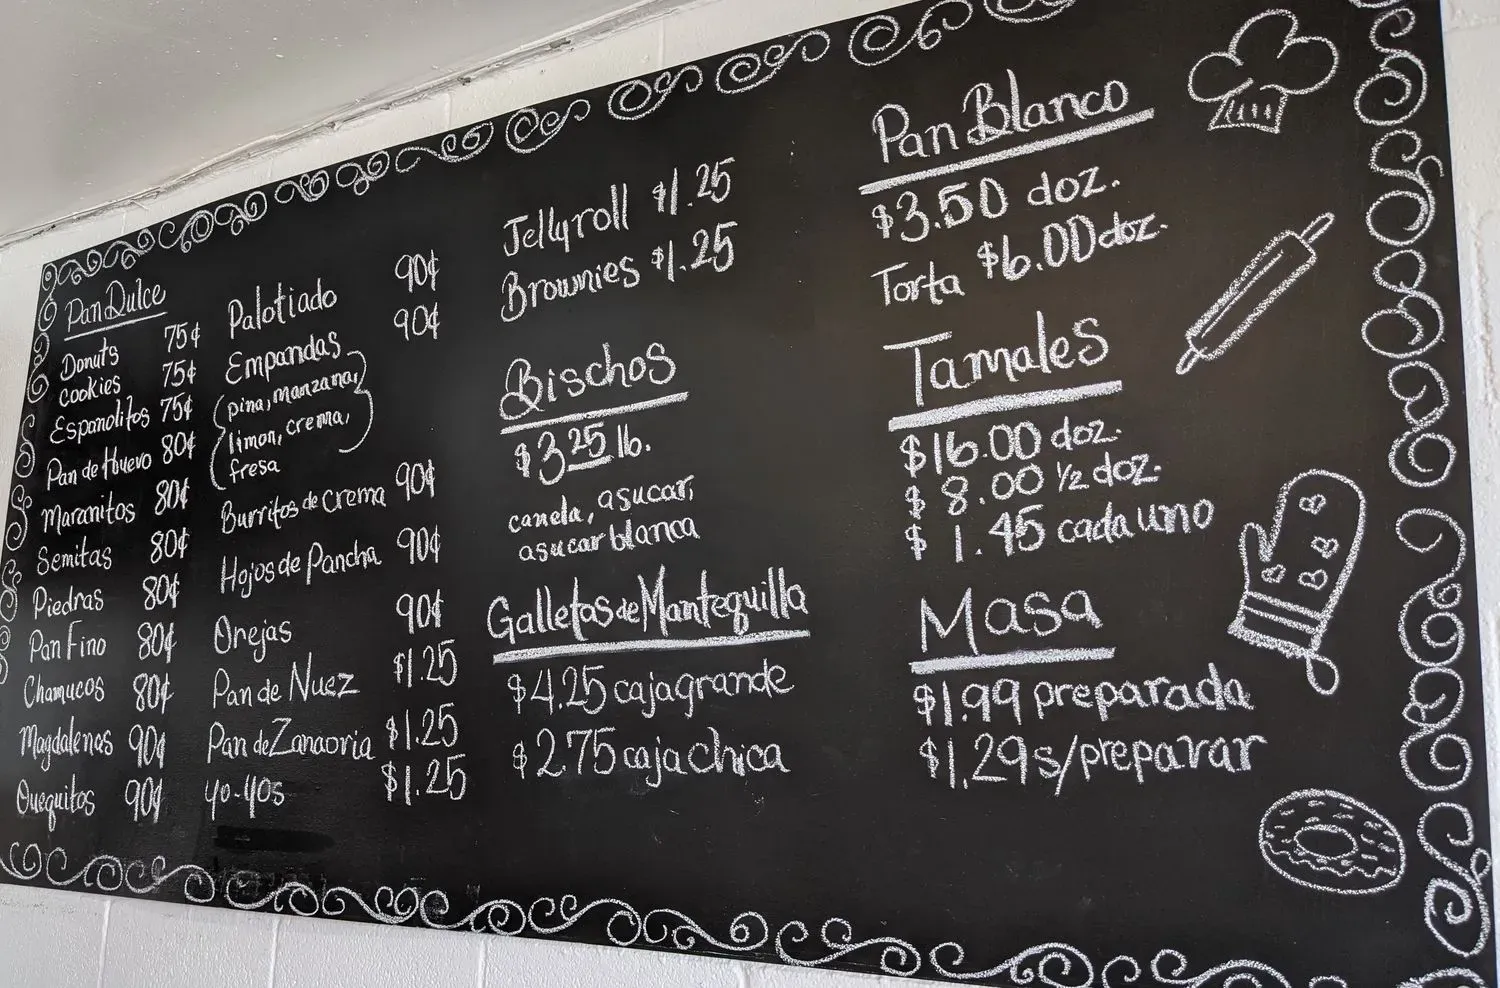 Pan Dulce
Donuts 75¢
cookies 75¢
Espanolitos 75¢
Pan de Huevo 80¢
Maranitos 80¢
Semitas 80¢
Piedras 80¢
Pan Fino 80¢
Chamucos 80¢
Magdalenas 90¢
Quequitos 90¢
Palotiado 90¢
Empandas 90¢
(pina, manzana,)
limon, crema,
fresa
Burritos de crema 90¢
Hojos de Pancha 90¢
Orejas 90¢
Pan de Nuez $1.25
Pan de Zanaoria $1.25
yo-yos $1.25
Jellyroll $1.25
Brownies $1.25
Bischos
$3.25 lb.
canela, asucar,
asucar blanca
Galletas de Mantequilla
$4.25 caja grande
$2.75 caja chica
Pan Blanco
$3.50 doz.
Torta $6.00 doz.
Tamales
$16.00 doz.
$8.00 1/2 doz.
$1.45 cada uno
Masa
$1.99 preparada
$1.29 s/preparar